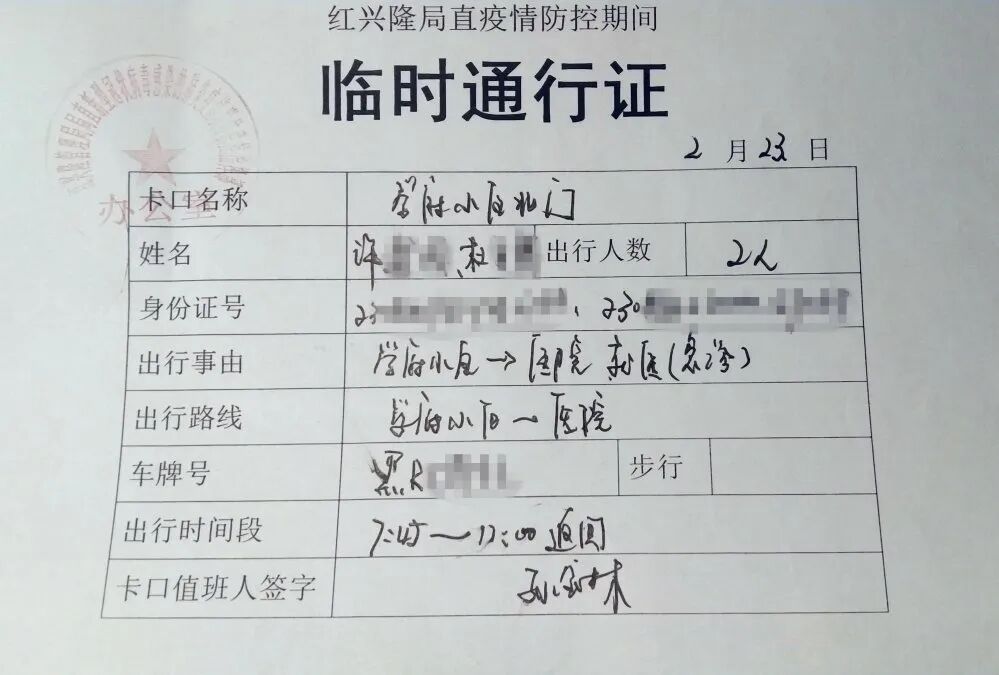 红兴隆局直疫情防控期间
临时通行证
2月23日
办公室
卡口名称 学府小区北门
姓名 许 、杜 出行人数 2人
身份证号 23 、230
出行事由 学府小区→医院 就医(急诊)
出行路线 学府小区—医院
车牌号 黑R 步行
出行时间段 7:45～12:00返回
卡口值班人签字